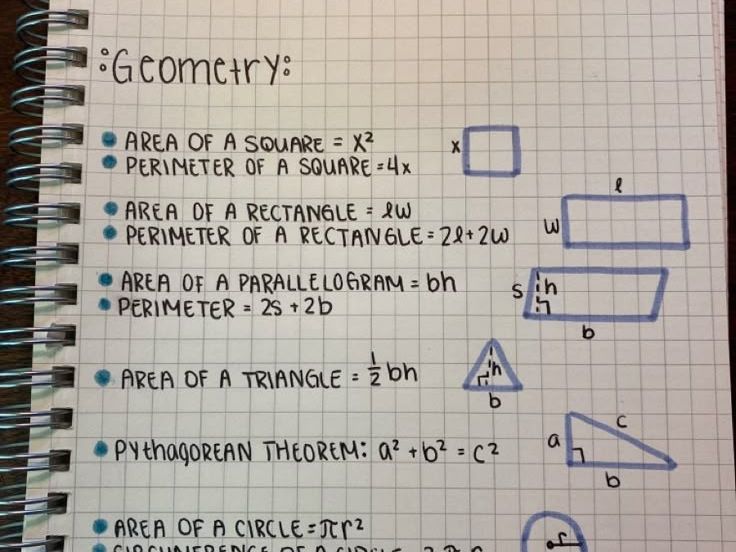 :Geometry:
• AREA OF A SQUARE = x²
x
• PERIMETER OF A SQUARE = 4x
l
• AREA OF A RECTANGLE = lw
w
• PERIMETER OF A RECTANGLE = 2l + 2w
• AREA OF A PARALLELOGRAM = bh
s h
• PERIMETER = 2s + 2b
b
• AREA OF A TRIANGLE = ½ bh
h
b
• PYthagOREAN THEOREM: a² + b² = c²
a c
b
• AREA OF A CIRCLE = πr²
r
CIRCUMFERENCE OF A CIRCLE